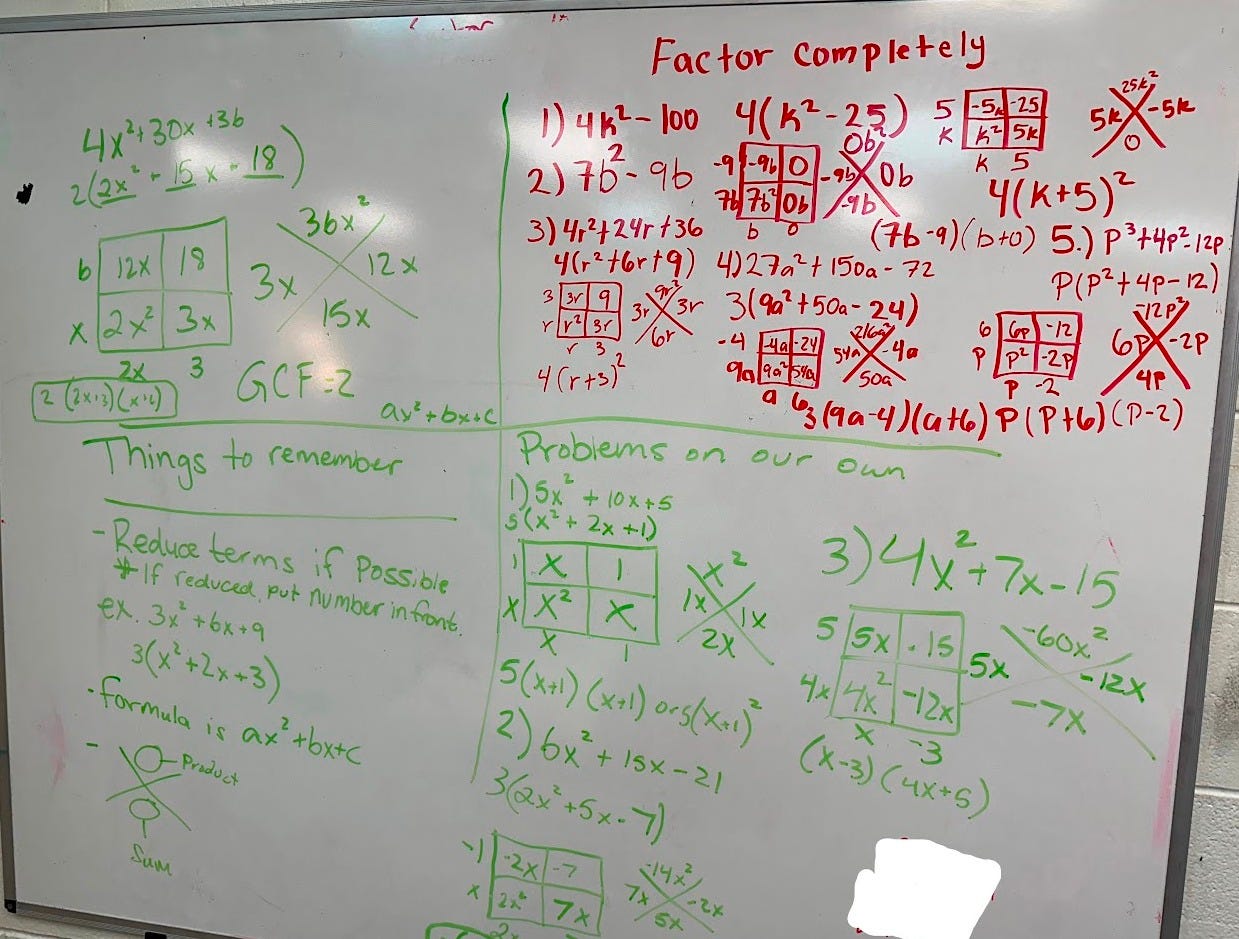 4x²+30x+36
2(2x² + 15x + 18)
6 12x 18
x 2x² 3x
2x 3
36x²
3x 12x
15x
2(2x+3)(x+6)
GCF=2
ax²+bx+c
Factor completely
1) 4k²-100 4(k²-25)
5 -5k -25
k k² 5k
k 5
25k²
5k -5k
0
4(k+5)²
2) 7b²-9b
-9 -9b 0
7b 7b² 0b
b 0
0b²
-9b 0b
-9b
(7b-9)(b+0)
3) 4r²+24r+36
4(r²+6r+9)
3 3r 9
r r² 3r
r 3
9r²
3r 3r
6r
4(r+3)²
4) 27a²+150a-72
3(9a²+50a-24)
-4 -4a -24
9a 9a² 54a
a 6
-216a²
54a -4a
50a
3(9a-4)(a+6)
5.) p³+4p²-12p
P(P²+4P-12)
6 6p -12
P P² -2P
P -2
-12p²
6P -2P
4P
P(P+6)(P-2)
Things to remember
- Reduce terms if possible
* If reduced, put number in front.
ex. 3x²+6x+9
3(x²+2x+3)
- formula is ax²+bx+c
- Product
Sum
Problems on our own
1) 5x²+10x+5
5(x²+2x+1)
1 x 1
x x² x
x 1
x²
1x 1x
2x
5(x+1)(x+1) or 5(x+1)²
2) 6x²+15x-21
3(2x²+5x-7)
-1 -2x -7
x 2x² 7x
2x
-14x²
7x -2x
5x
3) 4x²+7x-15
5 5x -15
4x 4x² -12x
x -3
-60x²
5x -12x
-7x
(x-3)(4x+5)